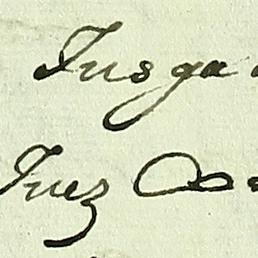 Jusga
Juez